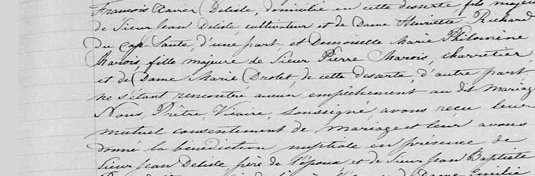 François Xavier Delisle, domicilié en cette desserte, fils majeur
de Sieur Jean Delisle cultivateur et de Dame Henriette Richard
du Cap Santé, d'une part, et Demoiselle Marie Philomène
Marois, fille majeure de Sieur Pierre Marois, charretier
et de Dame Marie Drolet de cette desserte, d'autre part,
ne s'étant rencontré aucun empêchement au dit mariage
Nous, Prêtre, Vicaire, soussigné, avons reçu leur
mutuel consentement de mariage et leur avons
donné la bénédiction nuptiale en présence de
Sieur Jean Delisle père de l'époux et de Sieur Jean Baptiste
Dame Emilie